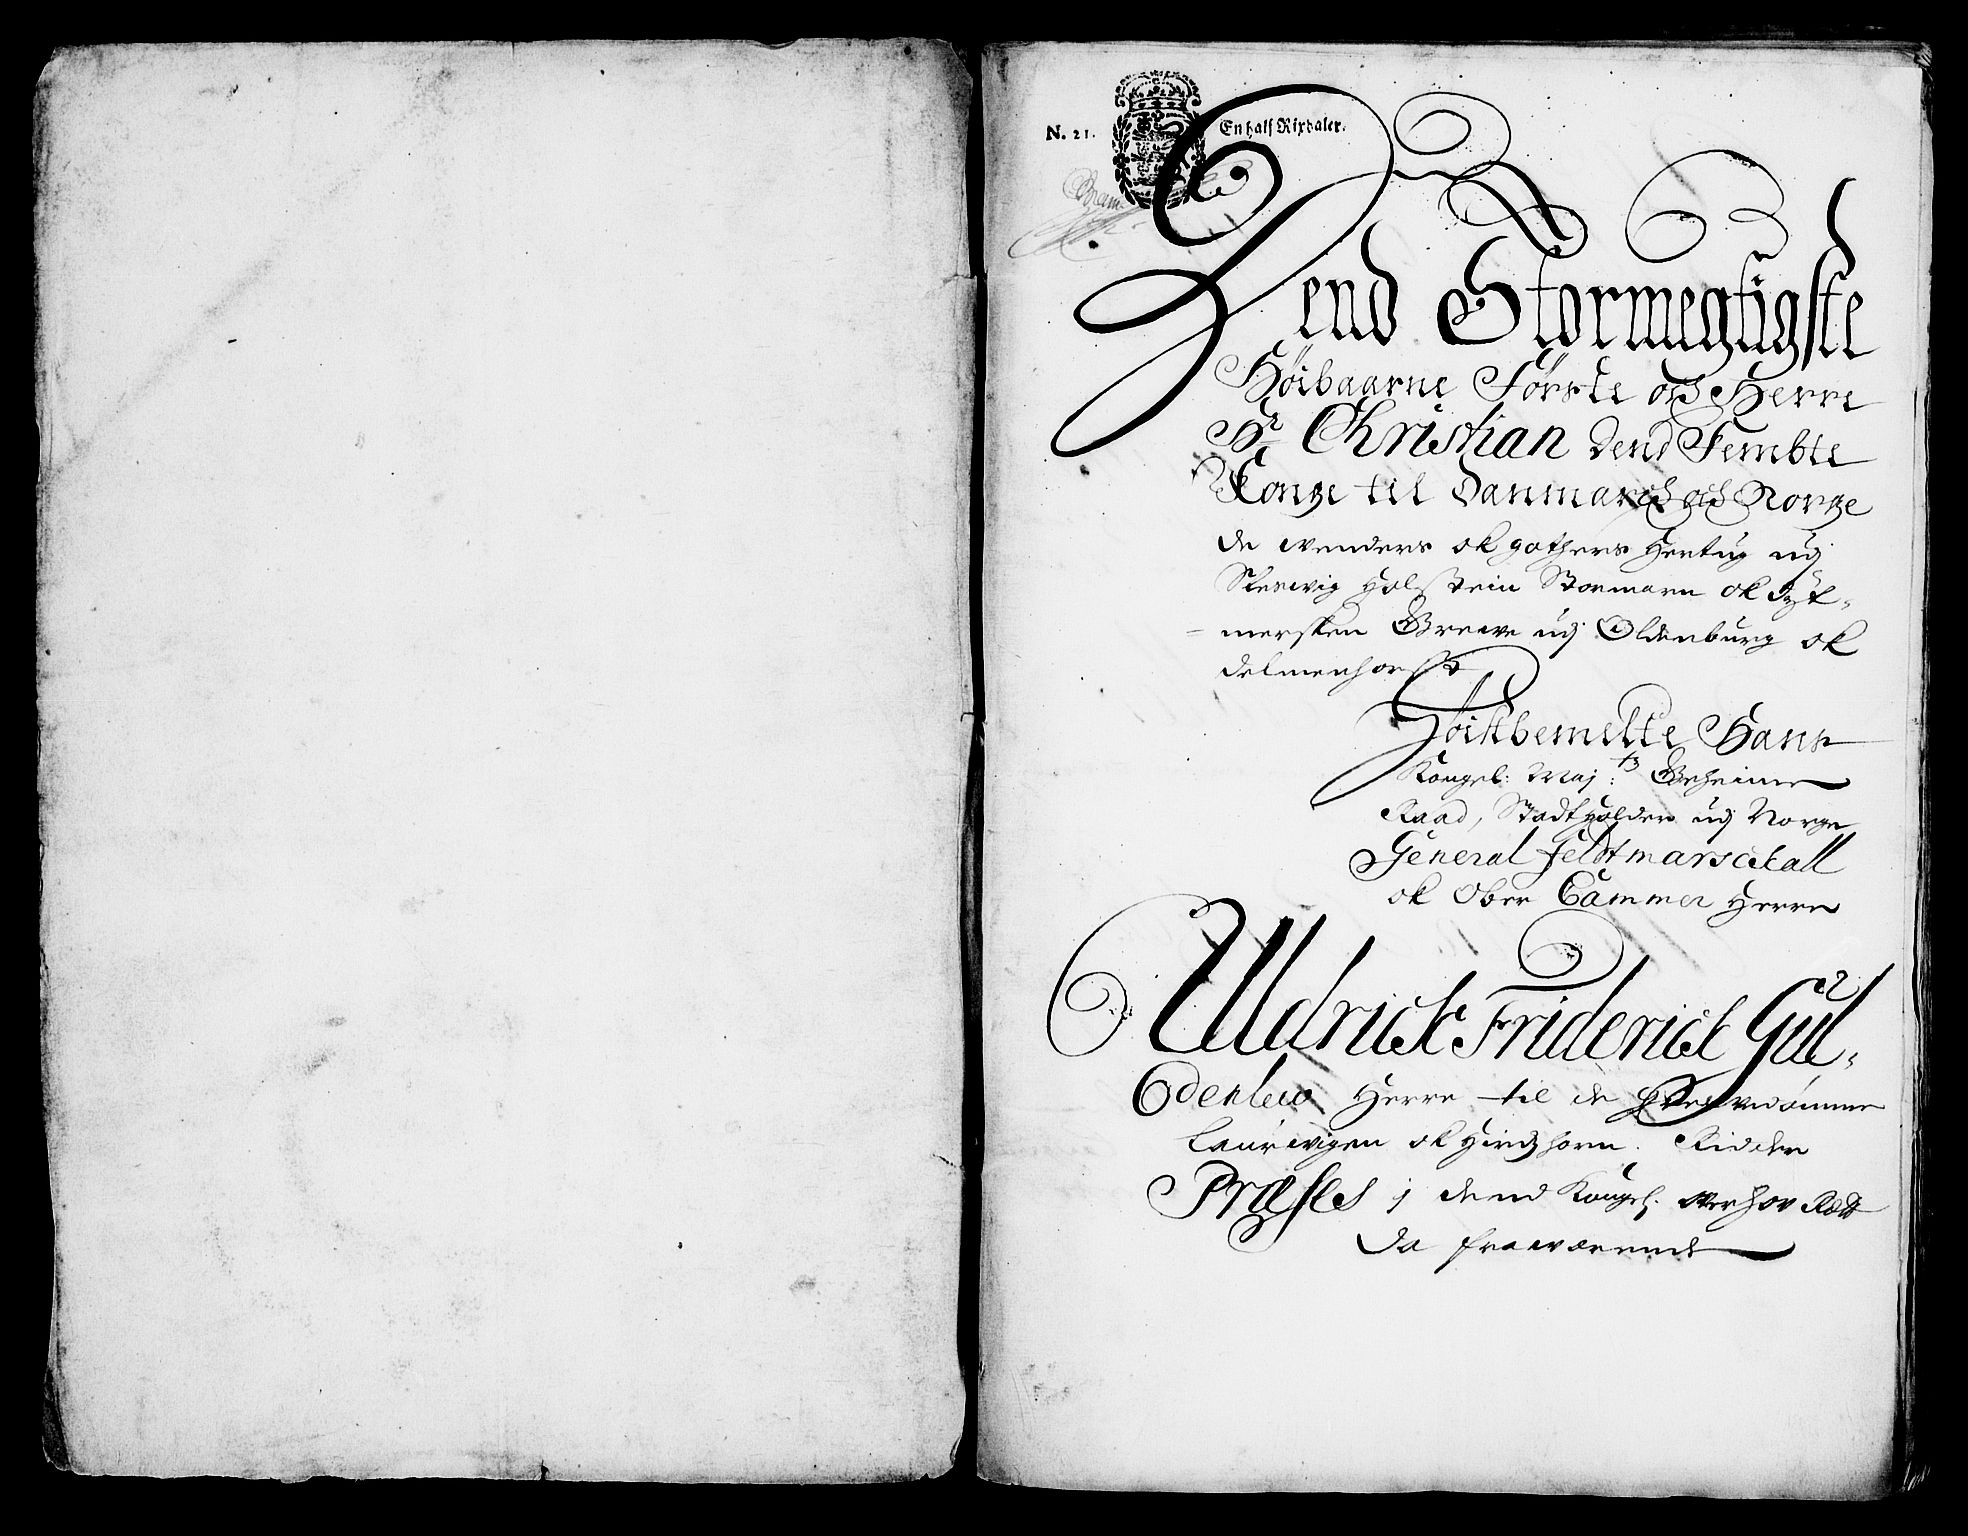 N. 21. En halff Rixdaler.
Dend Stormegtigste
Höibaarne Förste och Herre
Hr Christian dend Fembte
Konge til Danmarch och Norge
de Wenders ok gothers Hertug udj
Slesvig Holstein Stormarn ok Dyt-
=mersken Greve udj Oldenburg ok
delmenhorst
Höistbemelte Hans
Kongel: Maj:ts Geheime
Raad, Stadtholder udj Norge
General feldtmarschall
ok Ober Cammer Herre
Uldrick Friderick Gül-
denlew Herre til de Grevedömme
Laurwigen ok Hirdzhorn. Ridder
Præses j dend Kongel. Overhov Rett
da fraværende